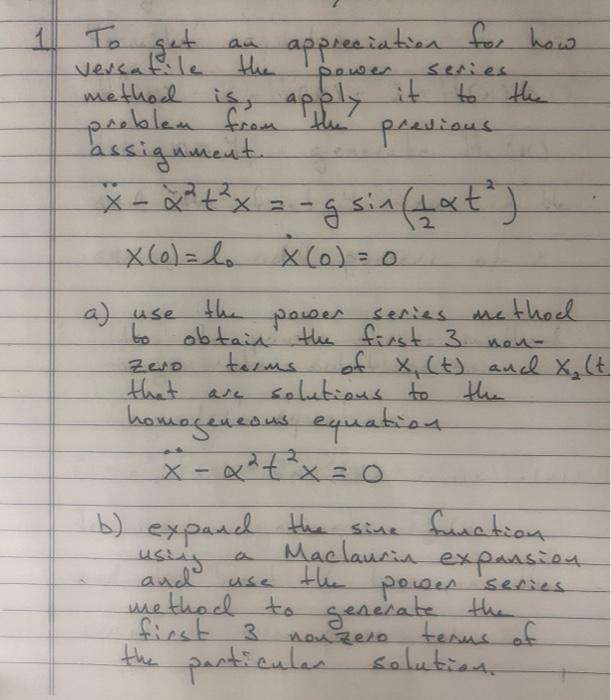 1. To get an appreciation for how
versatile the power series
method is, apply it to the
problem from the previous
assignment.
ẍ - α²t²x = -g sin(½αt²)
x(0) = l₀ ẋ(0) = 0
a) use the power series method
to obtain the first 3 non-
zero terms of x₁(t) and x₂(t
that are solutions to the
homogeneous equation
ẍ - α²t²x = 0
b) expand the sine function
using a Maclaurin expansion
and use the power series
method to generate the
first 3 nonzero terms of
the particular solution.